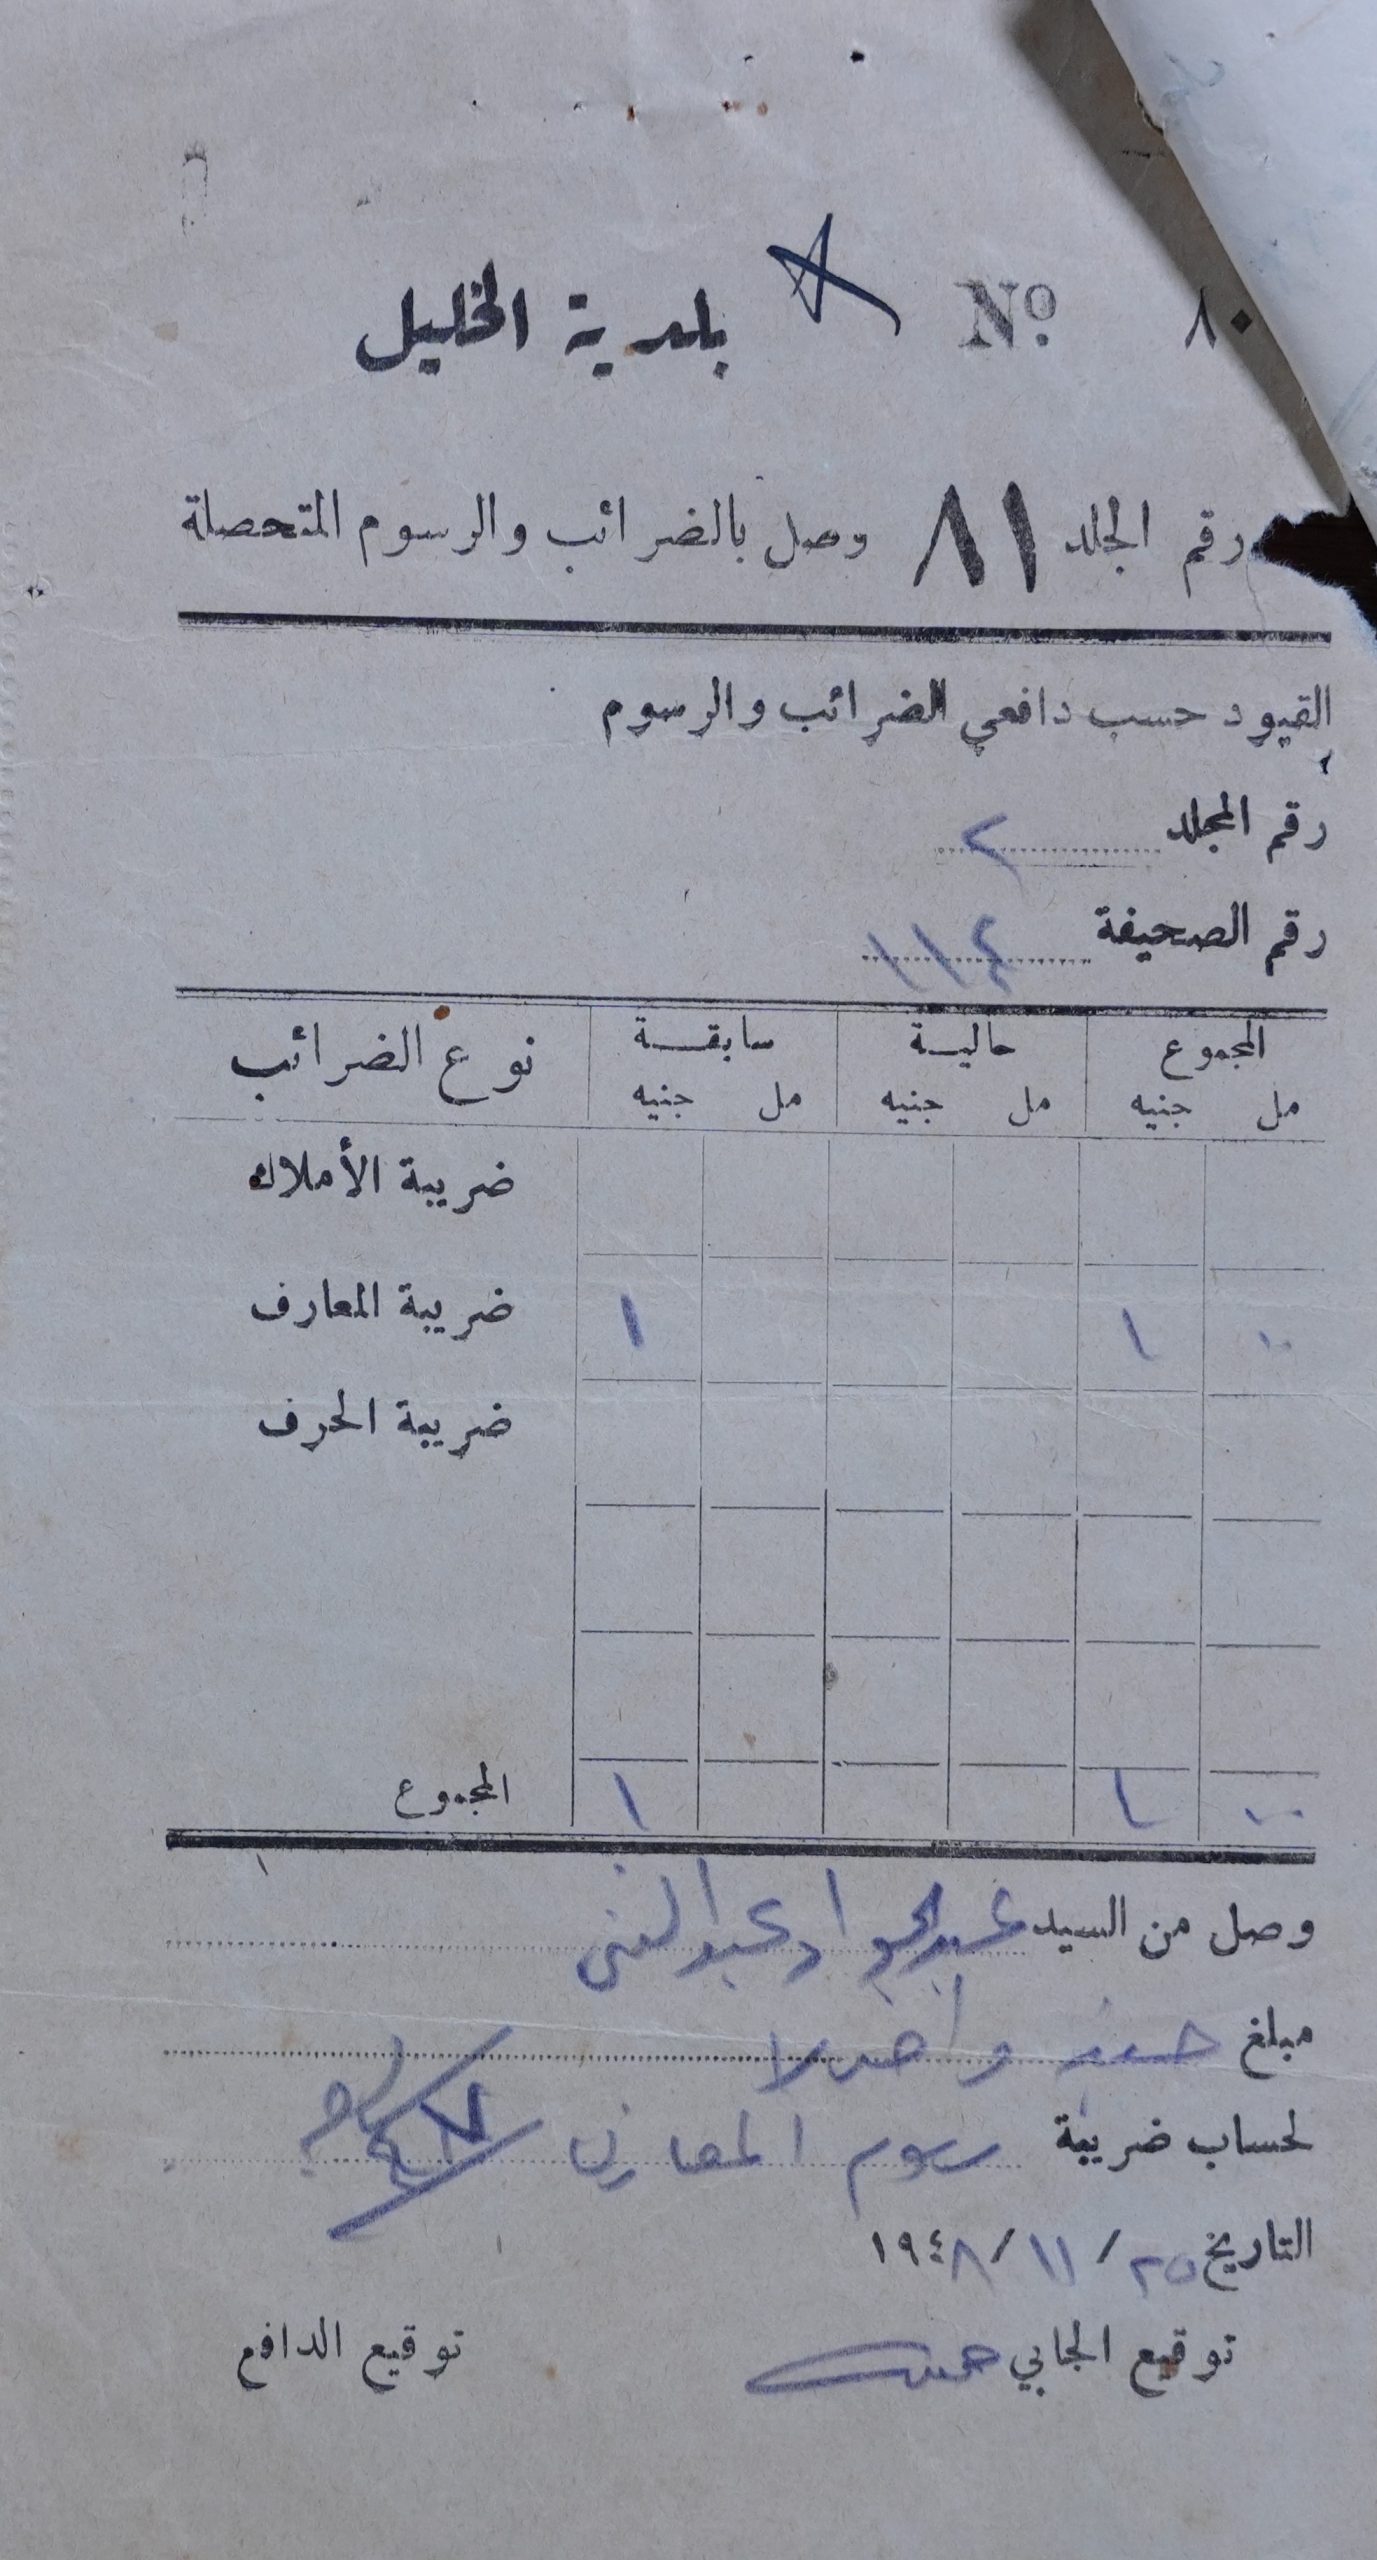 بلدية الخليل No. ٨٠
رقم الجلد ٨١ وصل بالضرائب والرسوم المتحصلة
القيود حسب دافعي الضرائب والرسوم
رقم المجلد ٢
رقم الصحيفة ١١٤
المجموع حالية سابقة نوع الضرائب
مل جنيه مل جنيه مل جنيه
ضريبة الأملاك
١٠٠ ١ ١ ضريبة المعارف
ضريبة الحرف
١ ١ المجموع
وصل من السيد عبد الجواد عبد الغني
مبلغ جنيه واحد لا
لحساب ضريبة رسوم المعارف
التاريخ ٢٥ / ١١ / ١٩٤٨
توقيع الجابي توقيع الدافع